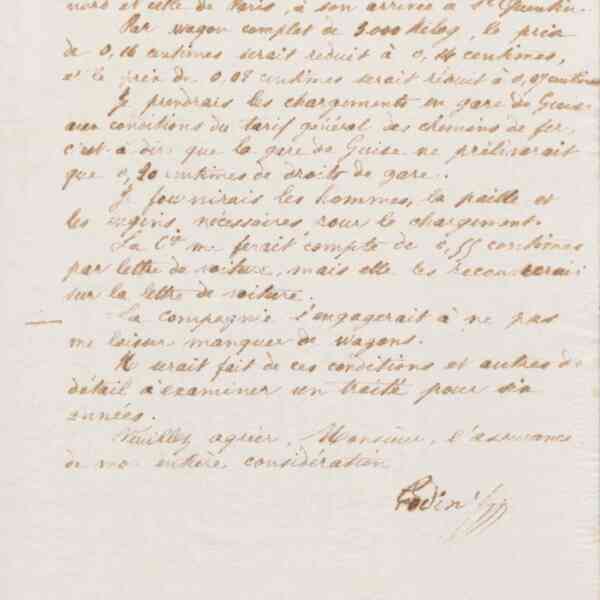 nord et celle de Paris, à son arrivée à St Quentin.
Par wagon complet de 5.000 Kilog, le prix
de 0,16 centimes serait réduit à 0,14 centimes,
et le prix de 0,08 centimes serait réduit à 0,07 centimes
Je prendrais les chargements en gare de Guise
aux conditions du tarif général des chemins de fer,
c'est à dire que la gare de Guise ne prélèverait
que 0,20 centimes de droits de gare.
Je fournirais les hommes, la paille et
les engins nécessaires pour le chargement.
La Cie me ferait compte de 0,55 centimes
par lettre de voiture, mais elle les recouvrerait
sur la lettre de voiture.
La compagnie s'engagerait à ne pas
me laisser manquer de wagons.
Il serait fait de ces conditions et autres de
détail à examiner un traité pour six
années.
Veuillez agréer, Monsieur, l'assurance
de mon entière considération
Godin